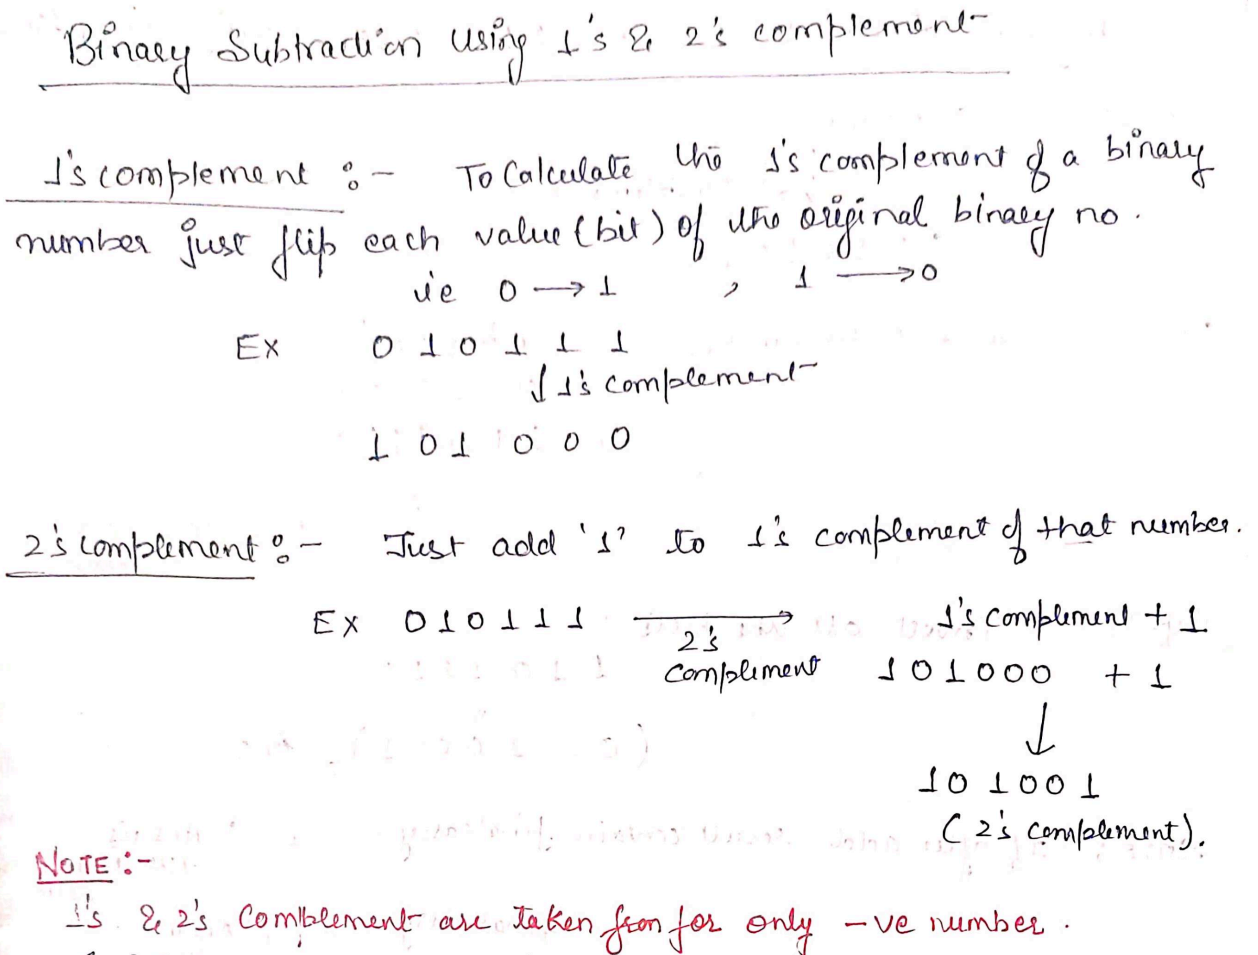 Binary Subtraction using 1's & 2's complement
1's complement :- To Calculate the 1's complement of a binary
number just flip each value (bit) of the original binary no.
ie 0 → 1 , 1 → 0
Ex 0 1 0 1 1 1
↓ 1's complement
1 0 1 0 0 0
2's complement :- Just add '1' to 1's complement of that number.
Ex 0 1 0 1 1 1 → 1's complement + 1
2's
complement 1 0 1 0 0 0 + 1
↓
1 0 1 0 0 1
(2's complement).
NOTE :-
1's & 2's Complement are taken for only -ve number.